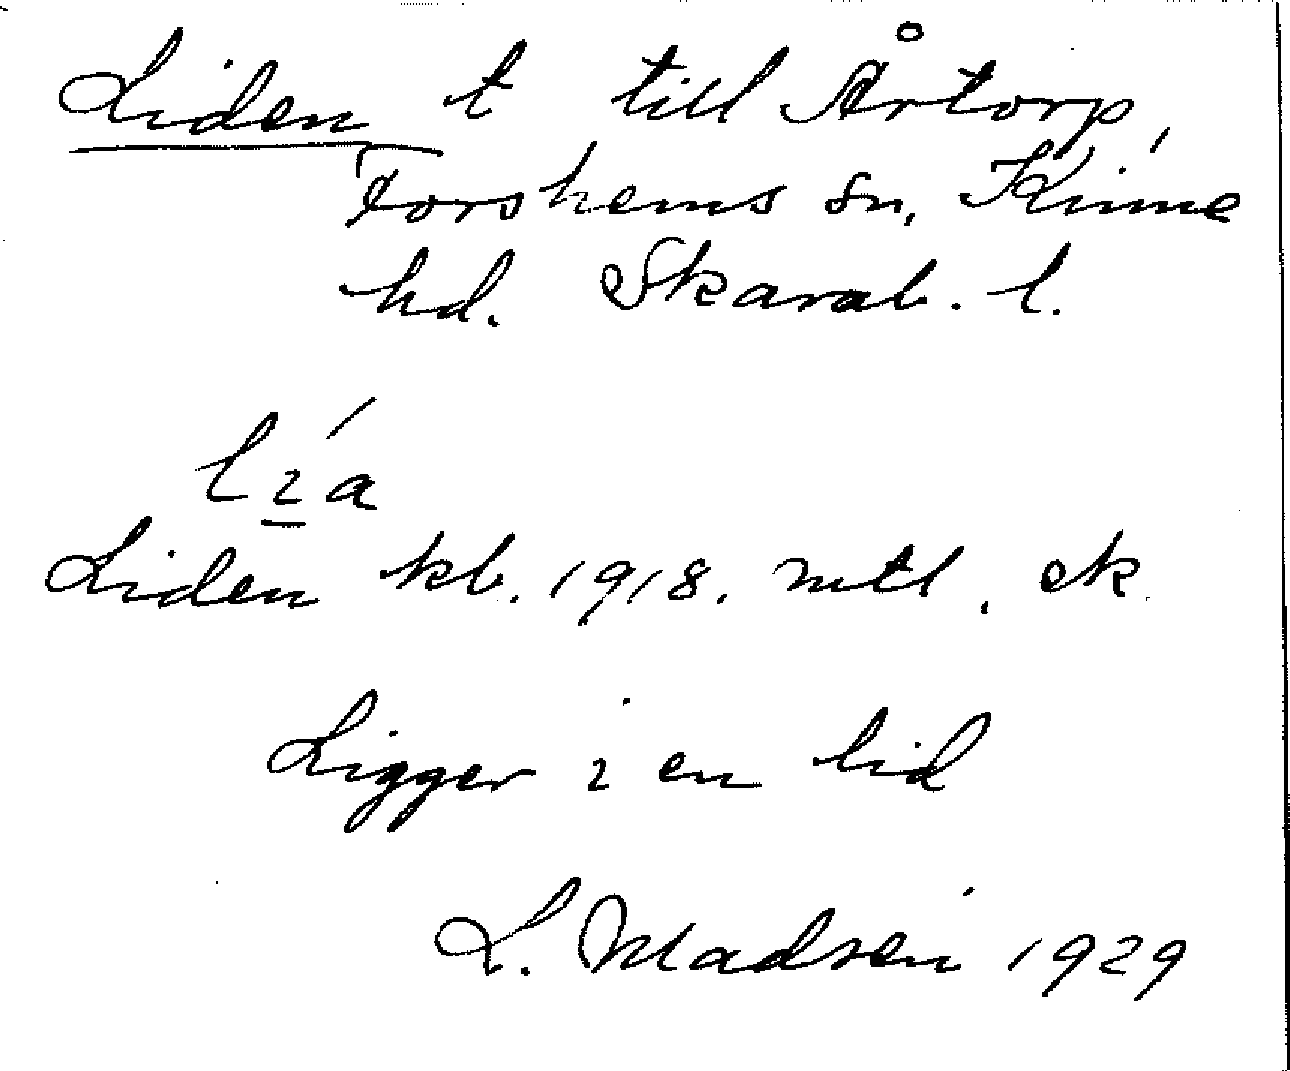 Liden t till Årtorp,
Forshems sn, Kinne
hd. Skarab. l.
lı̱́a
Liden kb. 1918. mtl, ek.
Ligger i en lid
L. Madsén 1929